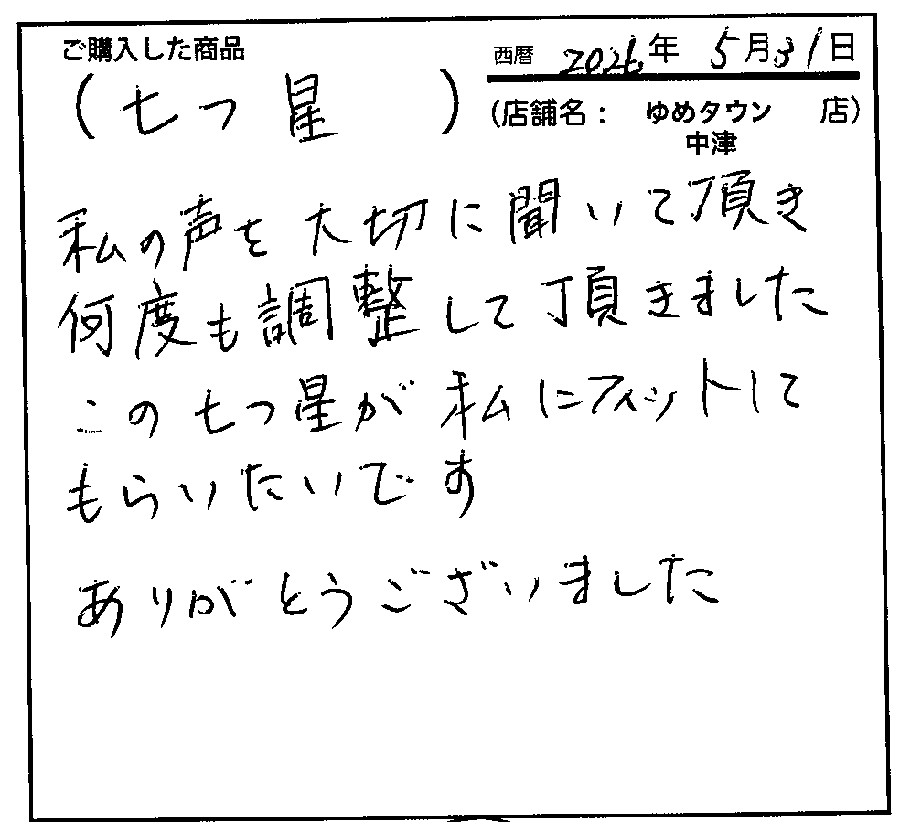 ご購入した商品
西暦 2026年 5月31日
(七つ星)
(店舗名: ゆめタウン 店)
中津
私の声を大切に聞いて頂き
何度も調整して頂きました
この七つ星が私にフィットして
もらいたいです
ありがとうございました